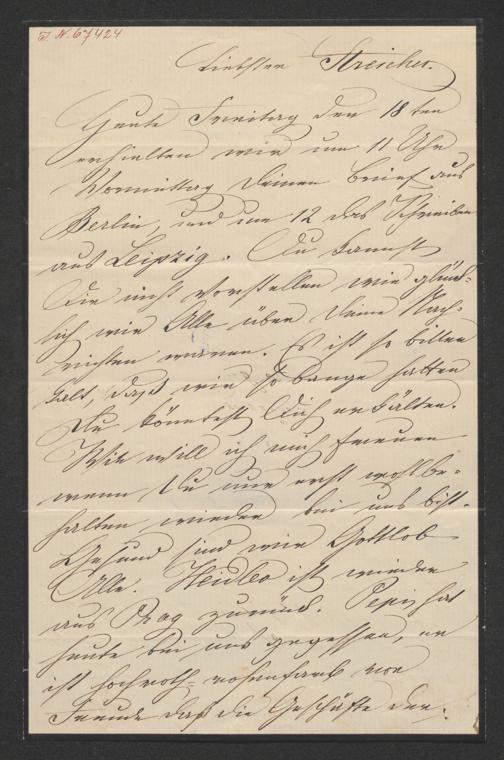 I. N. 67424
Liebster Streicher.
Heute Freitag den 18ten
erhielten wir um 11 Uhr
Vormittag Deinen Brief aus
Berlin, und um 12 das Schreiben
aus Leipzig. Du kannst
Dir nicht vorstellen wie glück-
lich wir Alle über Deine Nach-
richten waren. Es ist so bitter
kalt, daß wir so bange hatten
Du könntest Dich erkälten.
Wie will ich mich freuen
wenn Du nur erst wohlbe-
halten wieder bei uns bist.
Gesund sind wir Gottlob
Alle. ist wieder
aus Prag zurück. Pepi hat
heute bei uns gegessen, er
ist hochroth-rosenfarb vor
Freude daß die Geschäfte der